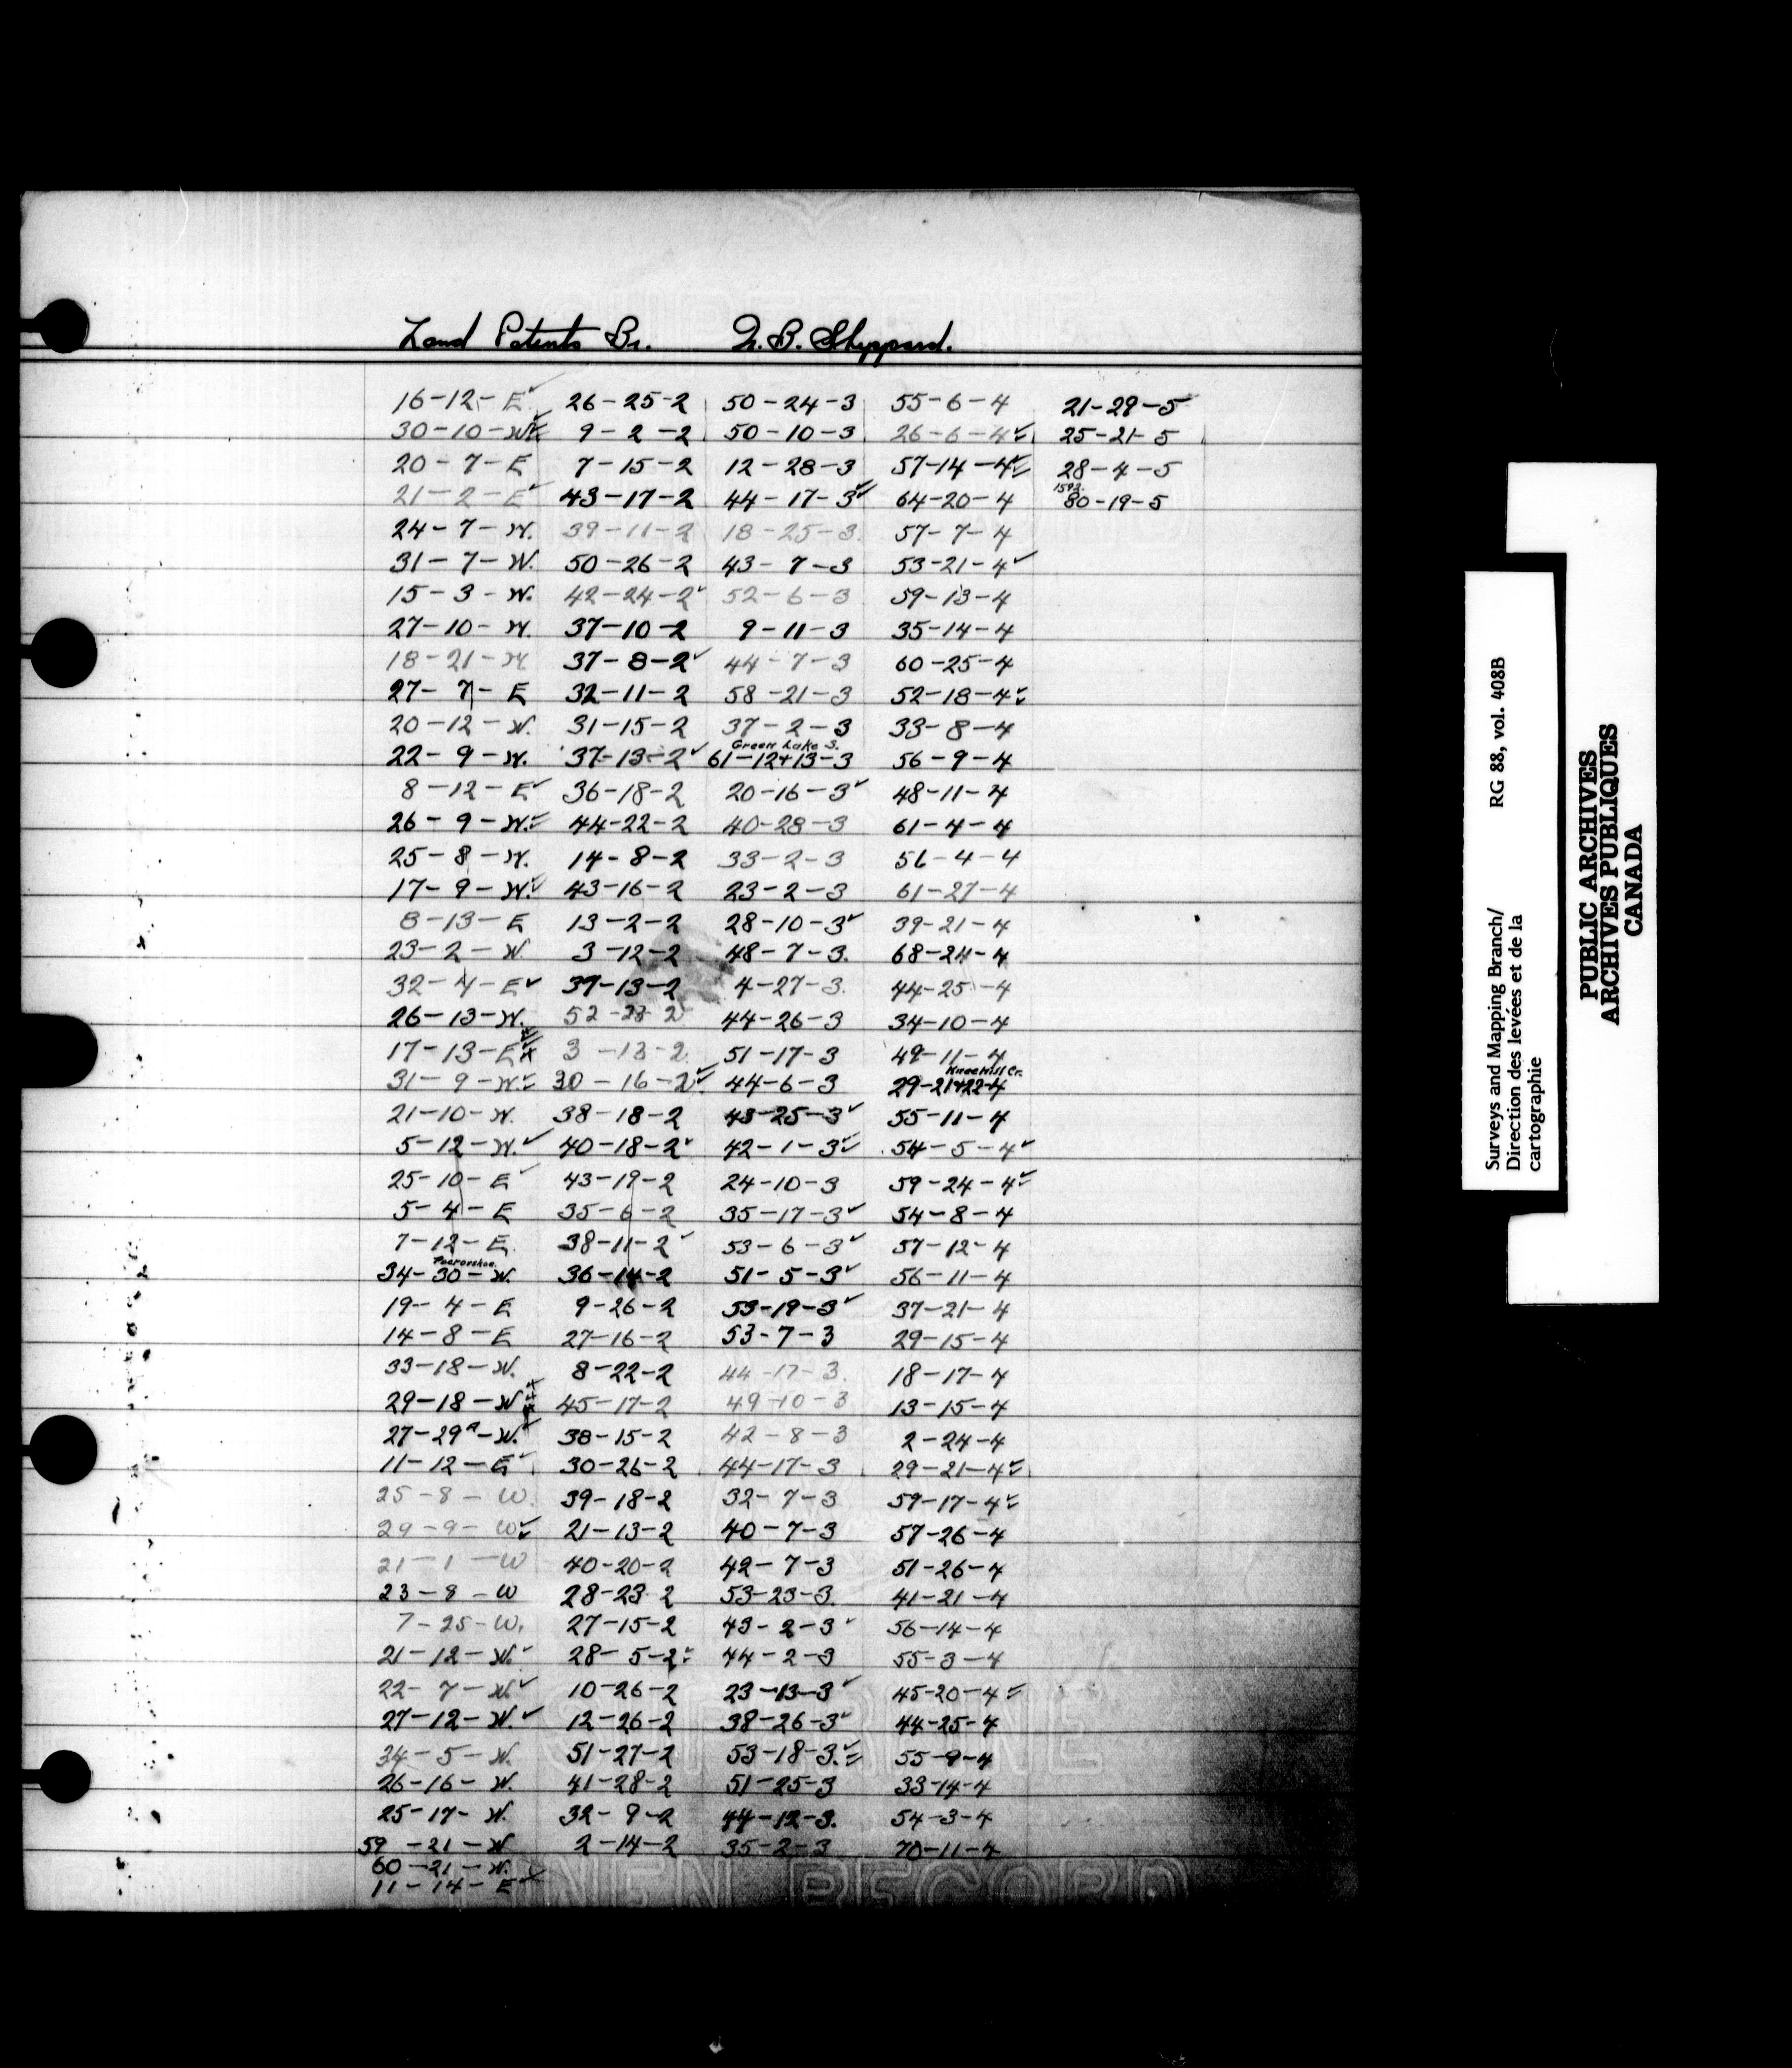 Land Patents Br. J. B. Sheppard.
16-12-E✓ 26-25-2 50-24-3 55-6-4 21-29-5✓
30-10-W✓ 9-2-2 50-10-3 26-6-4✓ 25-21-5
20-7-E 7-15-2 12-28-3 57-14-4✓ 28-4-5
21-2-E✓ 43-17-2 44-17-3✓ 64-20-4 1592 80-19-5
24-7-W. 39-11-2 18-25-3. 57-7-4
31-7-W. 50-26-2 43-7-3 53-21-4✓
15-3-W. 42-24-2✓ 52-6-3 59-13-4
27-10-W. 37-10-2 9-11-3 35-14-4
18-21-W. 37-8-2✓ 44-7-3 60-25-4
27-7-E 32-11-2 58-21-3 52-18-4✓
20-12-W. 31-15-2 37-2-3 33-8-4
Green Lake S.
22-9-W. 37-13-2✓ 61-12+13-3 56-9-4
8-12-E✓ 36-18-2 20-16-3✓ 48-11-4
26-9-W.✓ 44-22-2 40-28-3 61-4-4
25-8-W. 14-8-2 33-2-3 56-4-4
17-9-W.✓ 43-16-2 23-2-3 61-27-4
8-13-E 13-2-2 28-10-3✓ 39-21-4
23-2-W. 3-12-2 48-7-3. 68-24-4
32-4-E✓ 39-13-2 4-27-3. 44-25-4
26-13-W. 52-23-2 44-26-3 34-10-4
17-13-E✓x 3-13-2 51-17-3 49-11-4
Knee Hill Cr.
31-9-W✓ 30-16-2✓ 44-6-3 29-21+22-4
21-10-W. 38-18-2 43-25-3✓ 55-11-4
5-12-W.✓ 40-18-2✓ 42-1-3✓ 54-5-4✓
25-10-E✓ 43-19-2 24-10-3 59-24-4✓
5-4-E 35-6-2 35-17-3✓ 54-8-4
7-12-E. 38-11-2✓ 53-6-3✓ 57-12-4
34-30-W. 36-14-2 51-5-3✓ 56-11-4
19-4-E 9-26-2 53-19-3✓ 37-21-4
14-8-E 27-16-2 53-7-3 29-15-4
33-18-W. 8-22-2 44-17-3. 18-17-4
29-18-W 45-17-2 49-10-3 13-15-4
27-29ᴬ-W. 38-15-2 42-8-3 2-24-4
11-12-E✓ 30-26-2 44-17-3 29-21-4✓
25-8-W. 39-18-2 32-7-3 59-17-4✓
29-9-W✓ 21-13-2 40-7-3 57-26-4
21-1-W 40-20-2 49-7-3 51-26-4
23-8-W 28-23-2 53-23-3. 41-21-4
7-25-W. 27-15-2 43-2-3✓ 56-14-4
21-12-W.✓ 28-5-2✓ 44-2-3 55-3-4
22-7-W✓ 10-26-2 23-13-3✓ 45-20-4✓
27-12-W.✓ 12-26-2 38-26-3✓ 44-25-4
34-5-W. 51-27-2 53-18-3.✓ 55-9-4
26-16-W. 41-28-2 51-25-3 33-14-4
25-17-W. 32-9-2 44-12-3. 54-3-4
59-21-W 2-14-2 35-2-3 70-11-4
60-21-W.
11-14-E✓
Surveys and Mapping Branch/ RG 88, vol. 408B
Direction des levées et de la
cartographie
PUBLIC ARCHIVES
ARCHIVES PUBLIQUES
CANADA